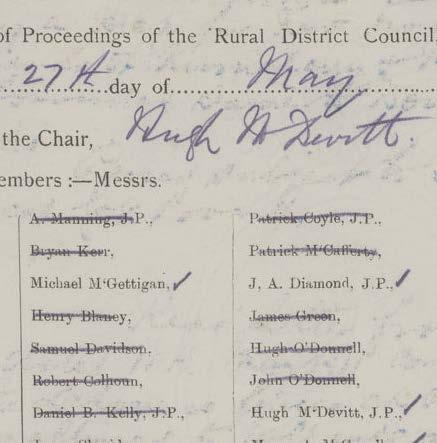 of Proceedings of the Rural District Council,
27th day of May
the Chair, Hugh McDevitt.
embers :—Messrs.
A. Manning, J.P.,
Bryan Kerr,
Michael M‘Gettigan, ✓
Henry Blaney,
Samuel Davidson,
Robert Colhoun,
Daniel B. Kelly, J.P.,
Patrick Coyle, J.P.,
Patrick M‘Cafferty,
J. A. Diamond, J.P., ✓
James Green,
Hugh O'Donnell,
John O'Donnell,
Hugh M‘Devitt, J.P., ✓